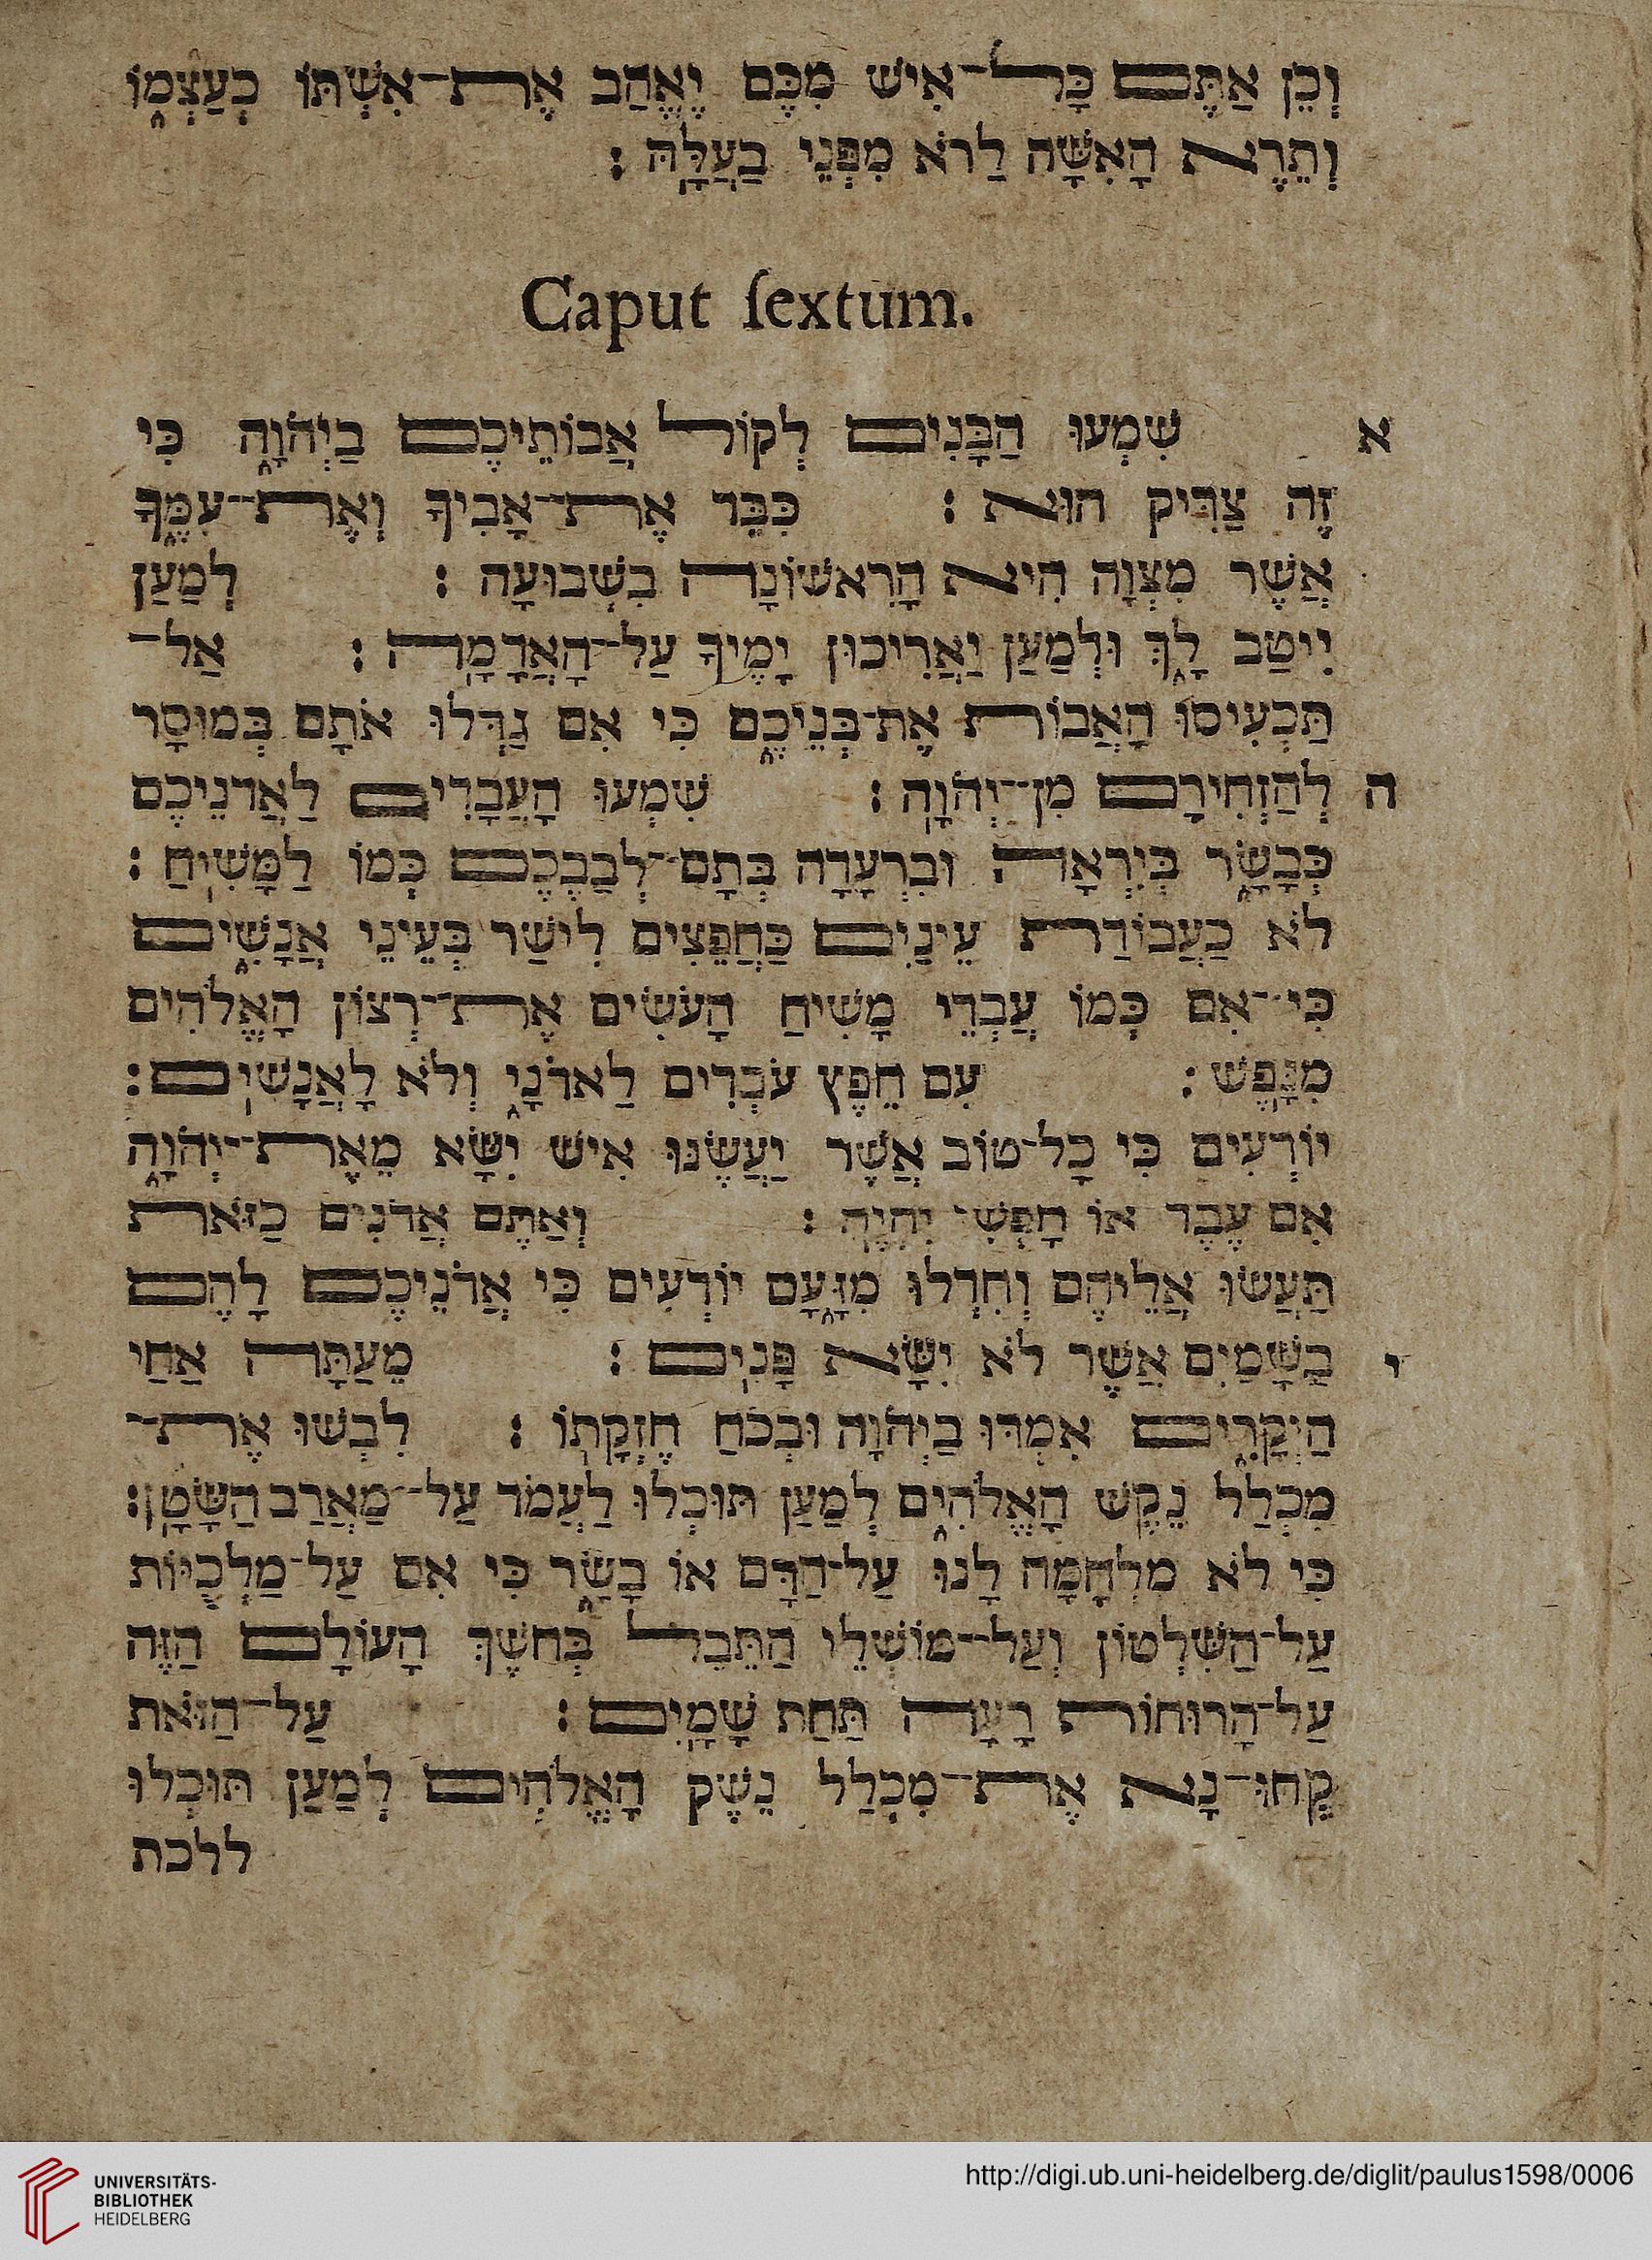 וְכֵן אַתֶּם כָּל־אִישׁ מִכֶּם יֶאֱהַב אֶת־אִשְׁתּוֹ כְּעַצְמ֑וֹ
וְתֵרֶא הָאִשָּׁה לַרֹא מִפְּנֵי בַעֲלָֽהּ :
Caput ſextum.
א שִׁמְעוּ הַבָּנִים לְקוֹל אֲבוֹתֵיכֶם בַּיְהוָ֑ה כִּי
זֶה צַדִּיק הוּא : כַּבֵּד אֶת־אָבִיךָ וְאֶת־עִמֶּ֑ךָ
אֲשֶׁר מִצְוָה הִיא הָרִאשׁוֹנָה בִּשְׁבוּעָה : לְמַעַן
יִיטַב לָ֑ךְ וּלְמַעַן יַאֲרִיכוּן יָמֶיךָ עַל־הָאֲדָמָֽה : אַל־
תַּכְעִיסוּ הָאֲבוֹת אֶת־בְּנֵיכֶ֑ם כִּי אִם גַּדְּלוּ אֹתָם בְּמוּסָר
ה לְהַזְהִירָם מִן־יְהֹוָֽה : שִׁמְעוּ הָעֲבָדִים לַאֲדֹנֵיכֶם
כְּבָשָׂ֑ר בְּיִרְאָה וּבִרְעָדָה בְּתָם־לְבַבְכֶם כְּמוֹ לַמָּשִֽׁיחַ :
לֹא כַעֲבוֹדַת עֵינַיִם כַּחֲפֵצִים לִישַׁר בְּעֵינֵי אֲנָשִׁ֑ים
כִּי־אִם כְּמוֹ עֲבְדֵי מָשִׁיחַ הָעֹשִׂים אֶת־רְצוֹן הָאֱלֹהִים
מִנָּֽפֶשׁ : עִם חֵפֶץ עֹבְדִים לַאדֹנָ֑י וְלֹא לָאֲנָשִֽׁים :
יוֹדְעִים כִּי כָל־טוֹב אֲשֶׁר יַעֲשֶׂנּוּ אִישׁ יִשָּׂא מֵאֶת־יְהֹוָ֑ה
אִם עֶבֶד אוֹ חָפְשִׁי יִהְיֶֽה : וְאַתֶּם אֲדֹנִים כַּזֹּאת
תַּעֲשׂוּ אֲלֵיהֶם וְחִדְלוּ מִזַּ֑עַם יוֹדְעִים כִּי אֲדֹנֵיכֶם לָהֶם
י בַּשָּׁמַיִם אֲשֶׁר לֹא יִשָּׂא פָּנִֽים : מֵעַתָּה אַחַי
הַיְקָרִ֑ים אִמְדוּ בַיְהוָה וּבְכֹחַ חֶזְקָתֽוֹ : לִבְשׁוּ אֶת־
מִכְלַל נֵשֶׁק הָאֱלֹהִ֑ים לְמַעַן תּוּכְלוּ לַעֲמֹד עַל־מַאֲרַב הַשָּׂטָֽן :
כִּי לֹא מִלְחָמָה לָנוּ עַל־הַדָּם אוֹ בָשָׂ֑ר כִּי אִם עַל־מַלְכֻיּוֹת
עַל־הַשִּׁלְטוֹן וְעַל־מוֹשְׁלֵי הַתֵּבֵל בְּחֹשֶׁךְ הָעוֹלָם הַזֶּה
עַל־הָרוּחוֹת רָעָה תַּחַת שָׁמָֽיִם : עַל־הַזֹּאת
קְחוּ־נָא אֶת־מִכְלַל נֵשֶׁק הָאֱלֹהִים לְמַעַן תּוּכְלוּ
ללכת
UNIVERSITÄTS-
BIBLIOTHEK
HEIDELBERG
http://digi.ub.uni-heidelberg.de/diglit/paulus1598/0006